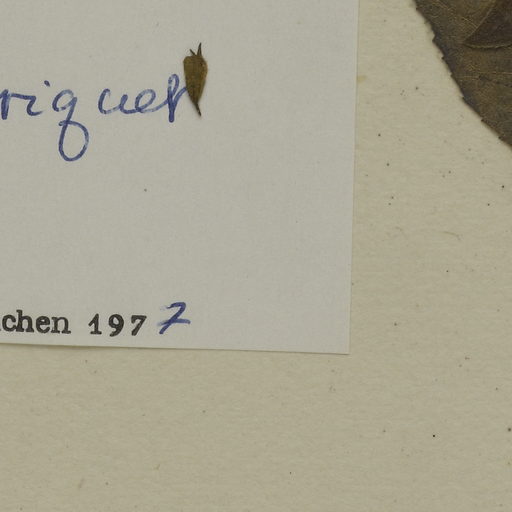 riquet
chen 1977